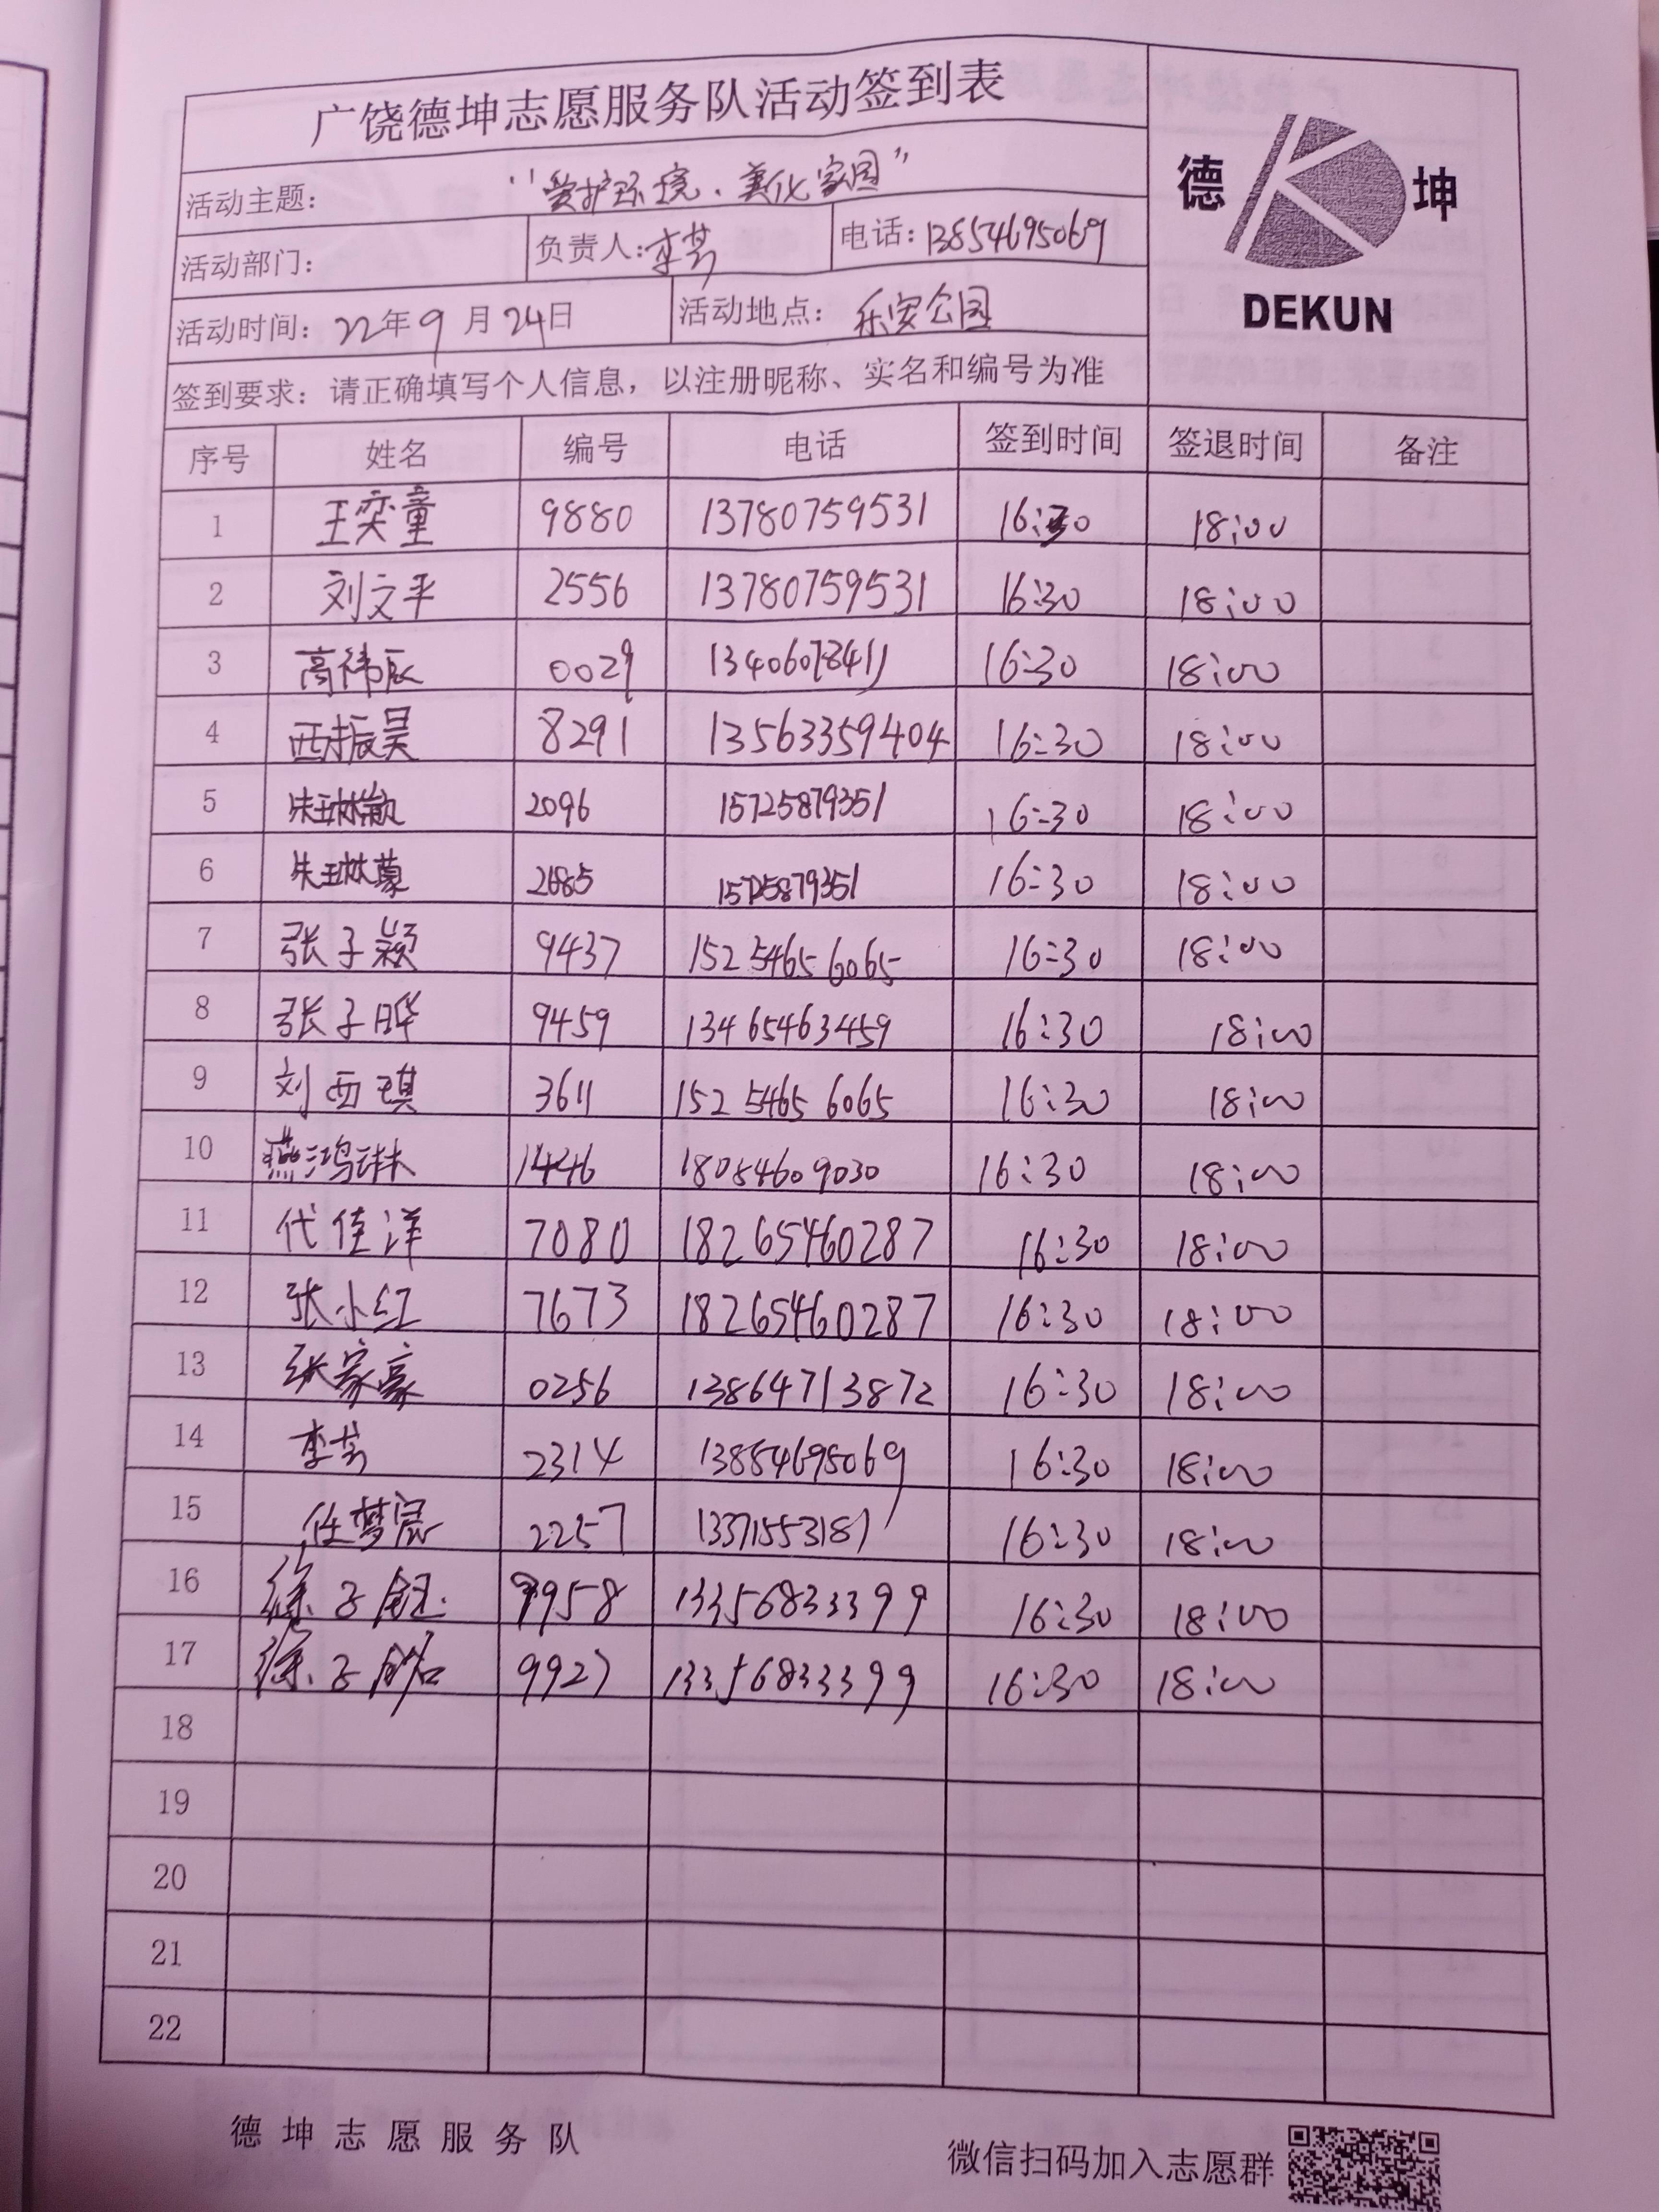 广饶德坤志愿服务队活动签到表
德 坤
DEKUN
活动主题： “爱护环境．美化家园”
活动部门： 负责人：李芸 电话：13854695069
活动时间：22年9月24日 活动地点：乐安公园
签到要求：请正确填写个人信息，以注册昵称、实名和编号为准
序号 姓名 编号 电话 签到时间 签退时间 备注
1 王奕童 9880 13780759531 16:30 18:00
2 刘文平 2556 13780759531 16:30 18:00
3 高祎辰 0029 13406078411 16:30 18:00
4 西振昊 8291 13563359404 16:30 18:00
5 朱琳 2096 15725879351 16:30 18:00
6 朱琳蒙 2685 15725879351 16:30 18:00
7 张子颍 9437 15254656065 16:30 18:00
8 张子晔 9459 13465463459 16:30 18:00
9 刘西琪 3611 15254656065 16:30 18:00
10 燕鸿琳 1446 18084609030 16:30 18:00
11 代佳洋 7080 18265460287 16:30 18:00
12 张小红 7673 18265460287 16:30 18:00
13 张家豪 0256 13864713872 16:30 18:00
14 李芸 2314 13854695069 16:30 18:00
15 任梦宸 2257 13371553181 16:30 18:00
16 徐子钰 9958 13356833399 16:30 18:00
17 徐子铭 9927 13356833399 16:30 18:00
18
19
20
21
22
德坤志愿服务队
微信扫码加入志愿群